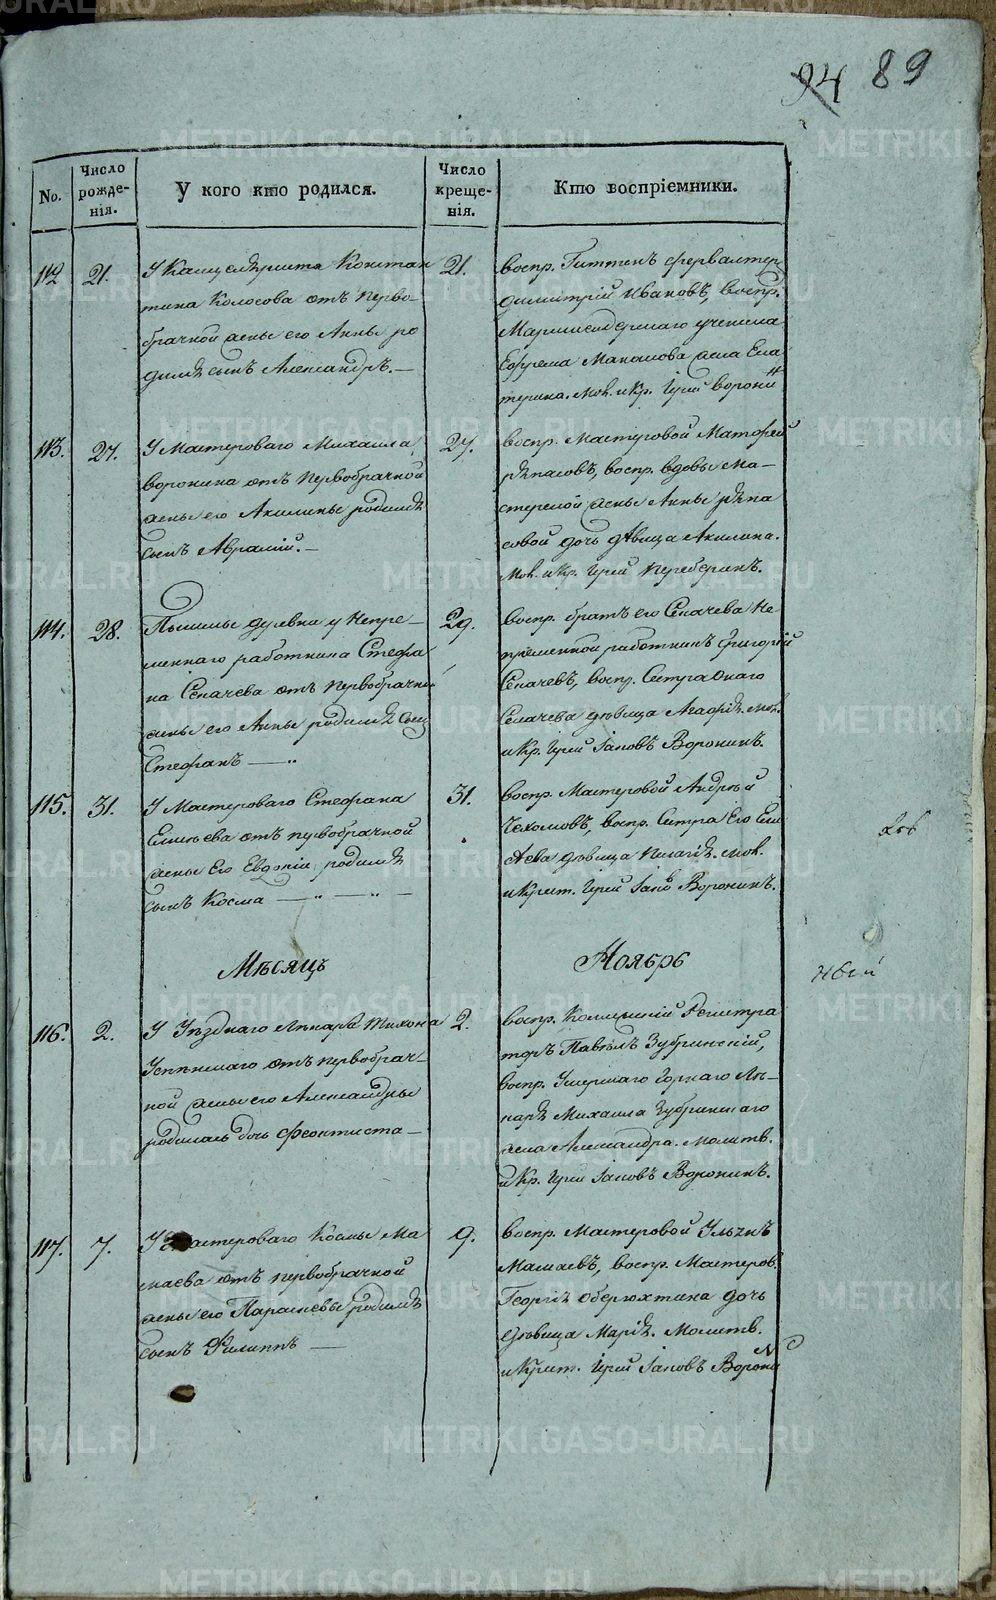 94 89
No.
Число рожденія.
У кого кто родился.
Число крещенія.
Кто воспріемники.
112 21. У Канцеляриста Констан
тина Колосова отъ перво-
брачной жены его Анны ро
дился сынъ Александръ.—
21. воспр. Гиттенъ фервалтер
димитрій Ивановъ, воспр.
Маркшейдерскаго ученика
Ефрема Макалова жена Ека
терина. мол. и кр. Іерей воронин
113. 27. У Мастероваго Михаила
воронина отъ первобрачной
жены его Акилины родился
сынъ Аврамій.—
27. воспр. мастеровой Матфей
рѣпасовъ, воспр. вдовы ма—
стерской жены Анны рѣпа
совой дочь дѣвица Акилина.
мол. и кр. Іерей Переберинъ.
114. 28. Пышмы деревни у непре—
меннаго работника Стефа
на Секачева отъ первобрачной
жены его Анны родился сынъ
Стефанъ —
29. воспр. братъ его Секачева не
пременной работникъ Григорій
Секачевъ, воспр. Сестра онаго
Секачева дѣвица Агафія. мол.
и кр. Іерей Іаковъ Воронинъ.
115. 31. У Мастероваго Стефана
Елисѣева отъ первобрачной
жены Его Евдокіи родился
сынъ Косма —
31. воспр. Мастеровой Андрѣй
Чехомовъ, воспр. Сестра Его Ели
сѣева дѣвица Пелагія. мол.
и крест. Іерей Іаковъ Воронинъ.
Мѣсяцъ Ноябрь
116. 2. У Уѣзднаго Лѣкаря Тихона
Успенскаго отъ первобрач—
ной жены его Александры
родилась дочь Феоктиста—
2. воспр. Коллежскій Регистра
торъ Павелъ Зубринскій,
воспр. Умершаго горнаго Лѣ—
каря Михаила Зубринскаго
жена Александра. Молитв.
и кр. Іерей Іаковъ Воронинъ.
117. 7. У мастероваго Космы Ма
маева отъ первобрачной
жены его Парасковьи родился
сынъ Филиппъ —
9. воспр. мастеровой Ульянъ
Мамаевъ, воспр. Мастеров.
Георгія Оберюхтина дочь
дѣвица Марія. Молитв.
и Крест. Іерей Іаковъ Воронин
METRIKI.GASO-URAL.RU